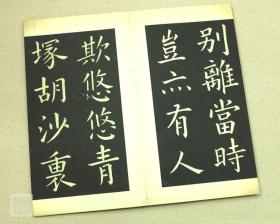 别離當時
豈亦有人
欺悠悠青
塚胡沙裏